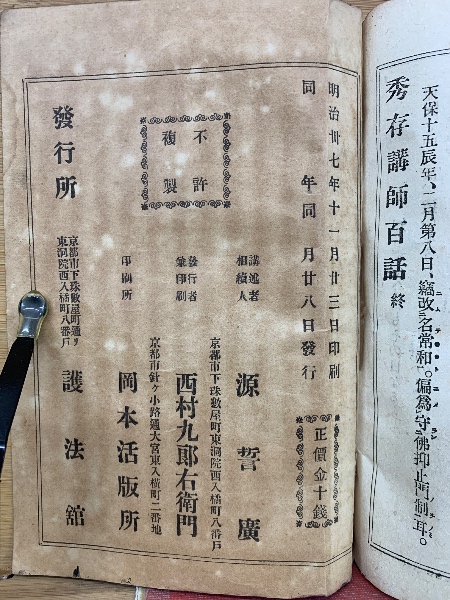 天保十五辰年、二月第八日、竊改名常和。偏爲守佛抑止門制耳。
秀存講師百話 終
明治卅七年十一月廿三日印刷
同 年同 月廿八日發行
正價金十錢
不許
複製
講述者
相續人
源 誓 廣
京都市下珠數屋町東洞院西入橘町八番戸
發行者
兼印刷
西村九郎右衛門
京都市針ヶ小路通大宮東入横町二番地
印刷所
岡本活版所
發行所
京都市下珠數屋町通リ
東洞院西入橘町八番戸
護法舘